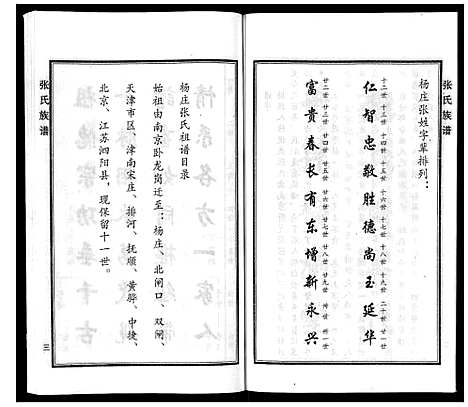 张氏族谱
杨庄张姓字辈排列：
十二世 十三世 十四世 十五世 十六世 十七世 十八世 十九世 二十世 廿一世
仁智忠敬胜德尚玉延华
廿二世 廿三世 廿四世 廿五世 廿六世 廿七世 廿八世 廿九世 卅世 卅一世
富贵春长有东增新永兴
杨庄张氏祖谱目录
始祖由南京卧龙岗迁至：杨庄、北闸口、双闸、
天津市区、津南宋庄、排河、抚顺、黄骅、中捷、
北京、江苏泗阳县，现保留十一世。
张氏族谱
三